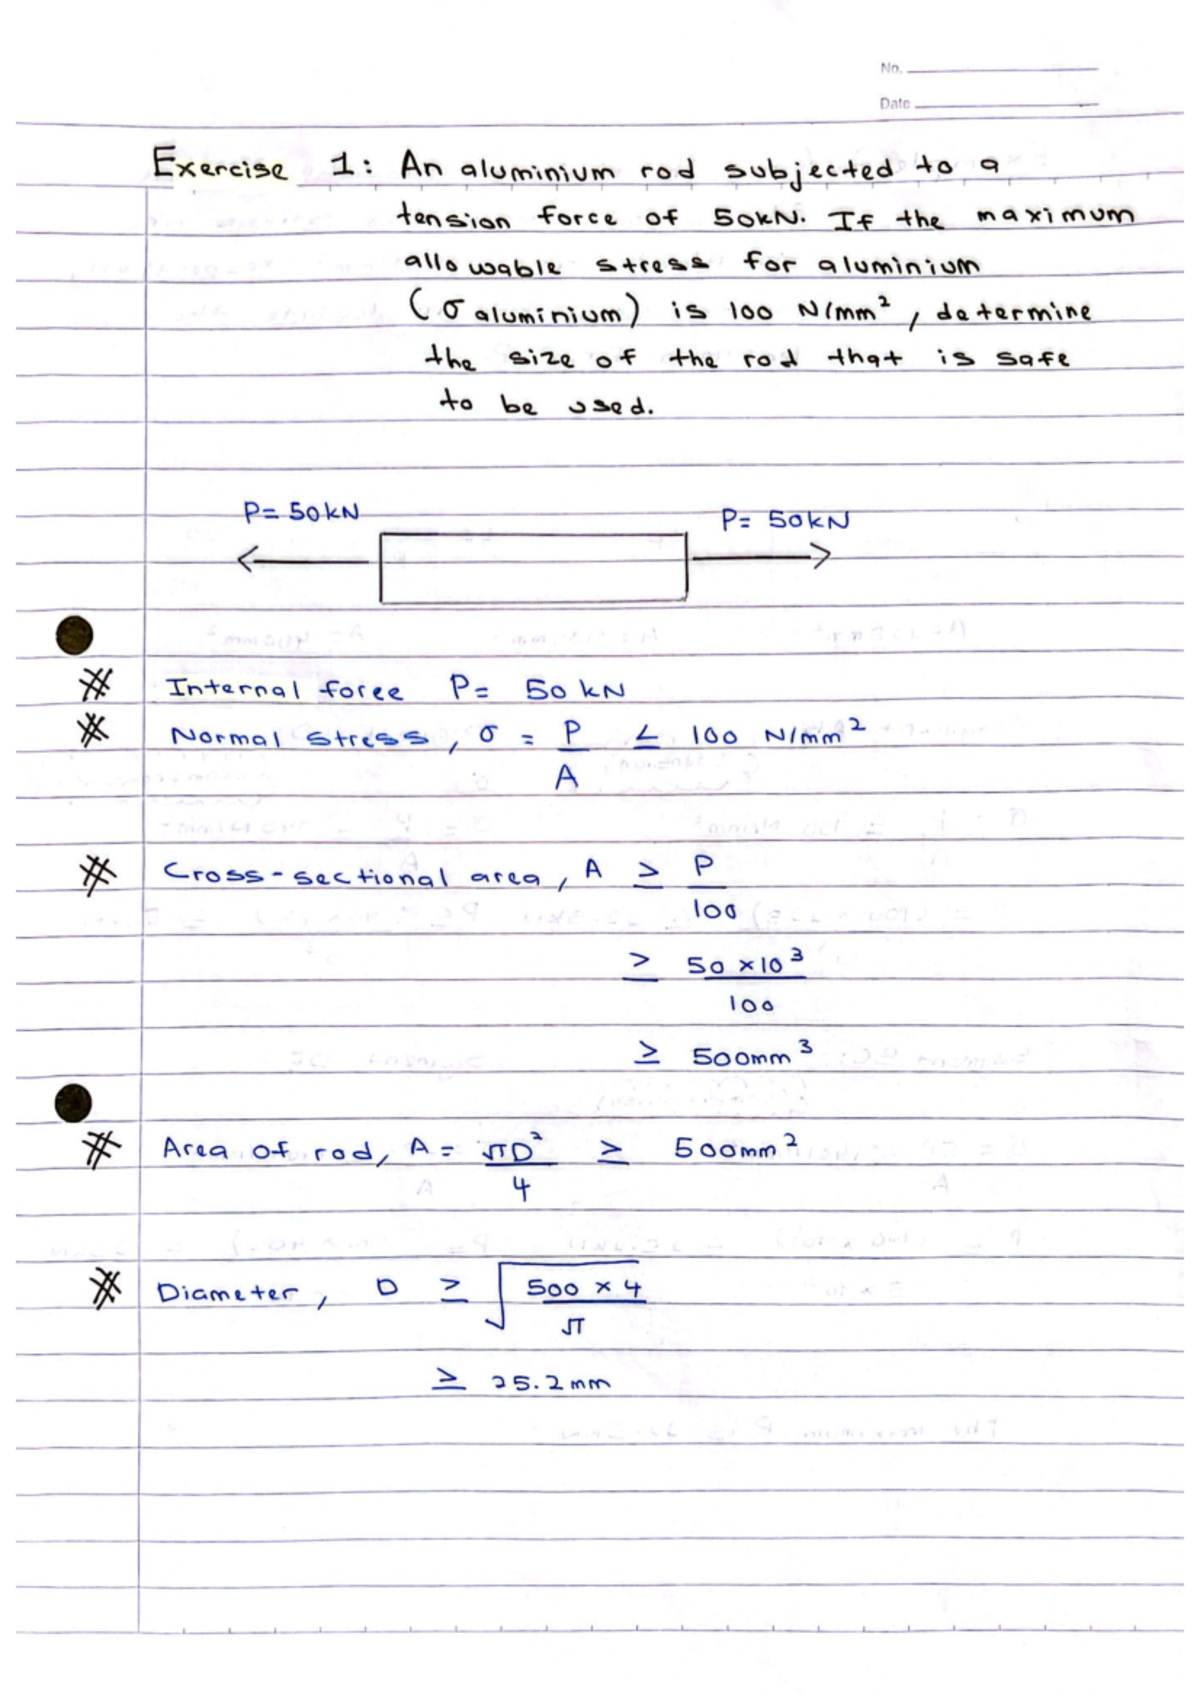 No.
Date
Exercise 1: An aluminium rod subjected to a
tension force of 50kN. If the maximum
allowable stress for aluminium
(σ aluminium) is 100 N/mm², determine
the size of the rod that is safe
to be used.
P= 50kN P= 50kN
# Internal force P= 50 kN
# Normal stress, σ = P/A ≤ 100 N/mm²
# Cross-sectional area, A ≥ P/100
≥ 50 ×10³/100
≥ 500mm³
# Area of rod, A= πD²/4 ≥ 500mm²
# Diameter, D ≥ √(500 × 4/π)
≥ 25.2mm